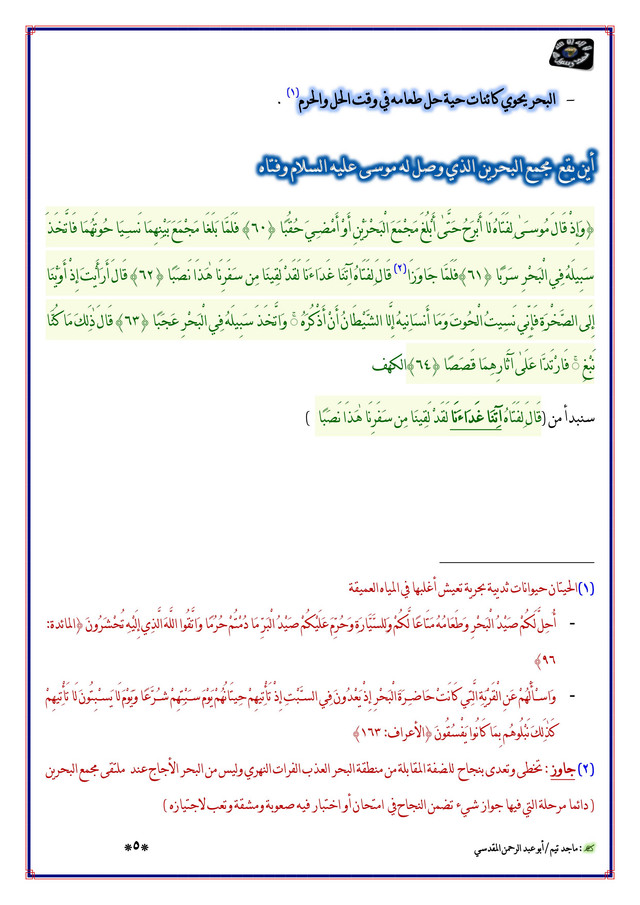 - البحر يحوي كائنات حية حل طعامه في وقت الحل والحرم(١) .
أين يقع مجمع البحرين الذي وصل له موسى عليه السلام وفتاه
﴿وَإِذْ قَالَ مُوسَىٰ لِفَتَاهُ لَا أَبْرَحُ حَتَّىٰ أَبْلُغَ مَجْمَعَ الْبَحْرَيْنِ أَوْ أَمْضِيَ حُقُبًا ﴿٦٠﴾ فَلَمَّا بَلَغَا مَجْمَعَ بَيْنِهِمَا نَسِيَا حُوتَهُمَا فَاتَّخَذَ
سَبِيلَهُ فِي الْبَحْرِ سَرَبًا ﴿٦١﴾ فَلَمَّا جَاوَزَا(٢) قَالَ لِفَتَاهُ آتِنَا غَدَاءَنَا لَقَدْ لَقِينَا مِن سَفَرِنَا هَٰذَا نَصَبًا ﴿٦٢﴾ قَالَ أَرَأَيْتَ إِذْ أَوَيْنَا
إِلَى الصَّخْرَةِ فَإِنِّي نَسِيتُ الْحُوتَ وَمَا أَنسَانِيهُ إِلَّا الشَّيْطَانُ أَنْ أَذْكُرَهُ ۚ وَاتَّخَذَ سَبِيلَهُ فِي الْبَحْرِ عَجَبًا ﴿٦٣﴾ قَالَ ذَٰلِكَ مَا كُنَّا
نَبْغِ ۚ فَارْتَدَّا عَلَىٰ آثَارِهِمَا قَصَصًا ﴿٦٤﴾ الكهف
سنبدأ من (قَالَ لِفَتَاهُ آتِنَا غَدَاءَنَا لَقَدْ لَقِينَا مِن سَفَرِنَا هَٰذَا نَصَبًا )
(١) الحيتان حيوانات ثديية بحرية تعيش أغلبها في المياه العميقة
- أُحِلَّ لَكُمْ صَيْدُ الْبَحْرِ وَطَعَامُهُ مَتَاعًا لَّكُمْ وَلِلسَّيَّارَةِ وَحُرِّمَ عَلَيْكُمْ صَيْدُ الْبَرِّ مَا دُمْتُمْ حُرُمًا وَاتَّقُوا اللَّهَ الَّذِي إِلَيْهِ تُحْشَرُونَ ﴿المائدة:
٩٦﴾
- وَاسْأَلْهُمْ عَنِ الْقَرْيَةِ الَّتِي كَانَتْ حَاضِرَةَ الْبَحْرِ إِذْ يَعْدُونَ فِي السَّبْتِ إِذْ تَأْتِيهِمْ حِيتَانُهُمْ يَوْمَ سَبْتِهِمْ شُرَّعًا وَيَوْمَ لَا يَسْبِتُونَ لَا تَأْتِيهِمْ
كَذَٰلِكَ نَبْلُوهُم بِمَا كَانُوا يَفْسُقُونَ ﴿الأعراف: ١٦٣﴾
(٢) جاوز : تخطى وتعدى بنجاح للضفة المقابلة من منطقة البحر العذب الفرات النهري وليس من البحر الأجاج عند ملتقى مجمع البحرين
( دائما مرحلة التي فيها جواز شيء تضمن النجاح في امتحان أو اختبار فيه صعوبة ومشقة وتعب لاجتيازه )
: ماجد تيم / أبو عبد الرحمن المقدسي
*٥*